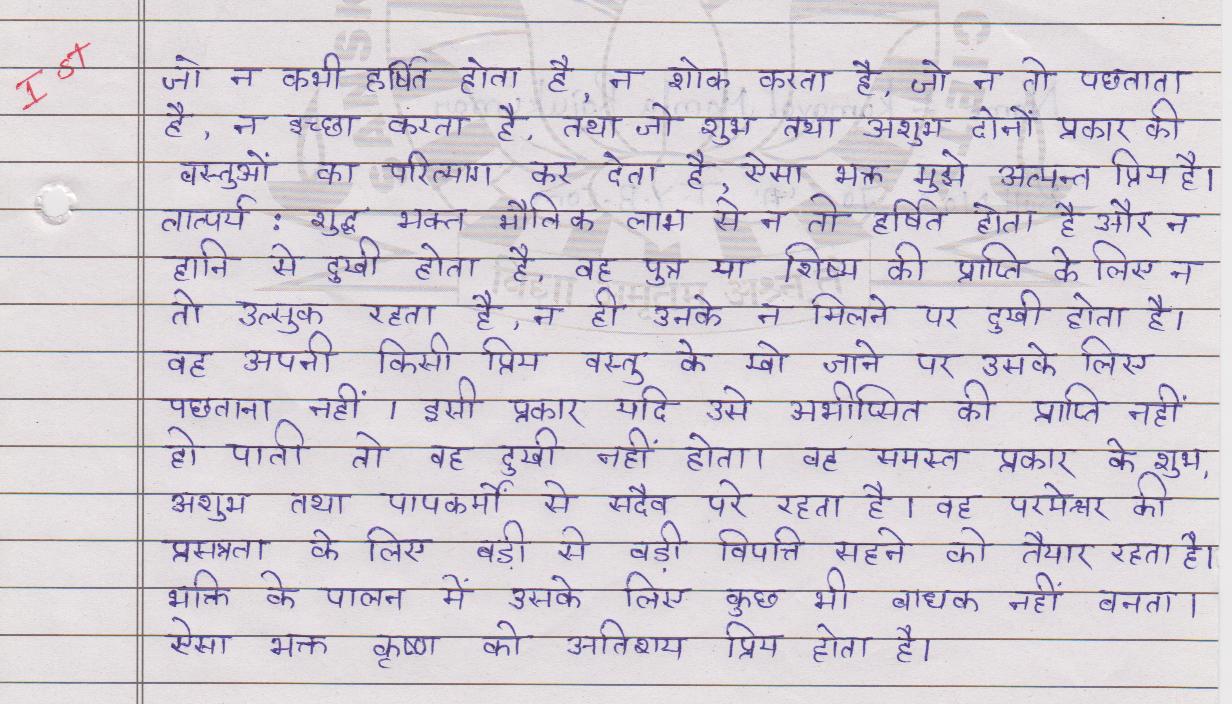 I st
जो न कभी हर्षित होता है, न शोक करता है, जो न तो पछताता
है, न इच्छा करता है, तथा जो शुभ तथा अशुभ दोनों प्रकार की
वस्तुओं का परित्याग कर देता है, ऐसा भक्त मुझे अत्यन्त प्रिय है।
तात्पर्य : शुद्ध भक्त भौतिक लाभ से न तो हर्षित होता है और न
हानि से दुखी होता है, वह पुत्र या शिष्य की प्राप्ति के लिए न
तो उत्सुक रहता है, न ही उनके न मिलने पर दुखी होता है।
वह अपनी किसी प्रिय वस्तु के खो जाने पर उसके लिए
पछताना नहीं । इसी प्रकार यदि उसे अभीप्सित की प्राप्ति नहीं
हो पाती तो वह दुखी नहीं होता। वह समस्त प्रकार के शुभ,
अशुभ तथा पापकर्मों से सदैव परे रहता है। वह परमेश्वर की
प्रसन्नता के लिए बड़ी से बड़ी विपत्ति सहने को तैयार रहता है।
भक्ति के पालन में उसके लिए कुछ भी बाधक नहीं बनता।
ऐसा भक्त कृष्ण को अतिशय प्रिय होता है।